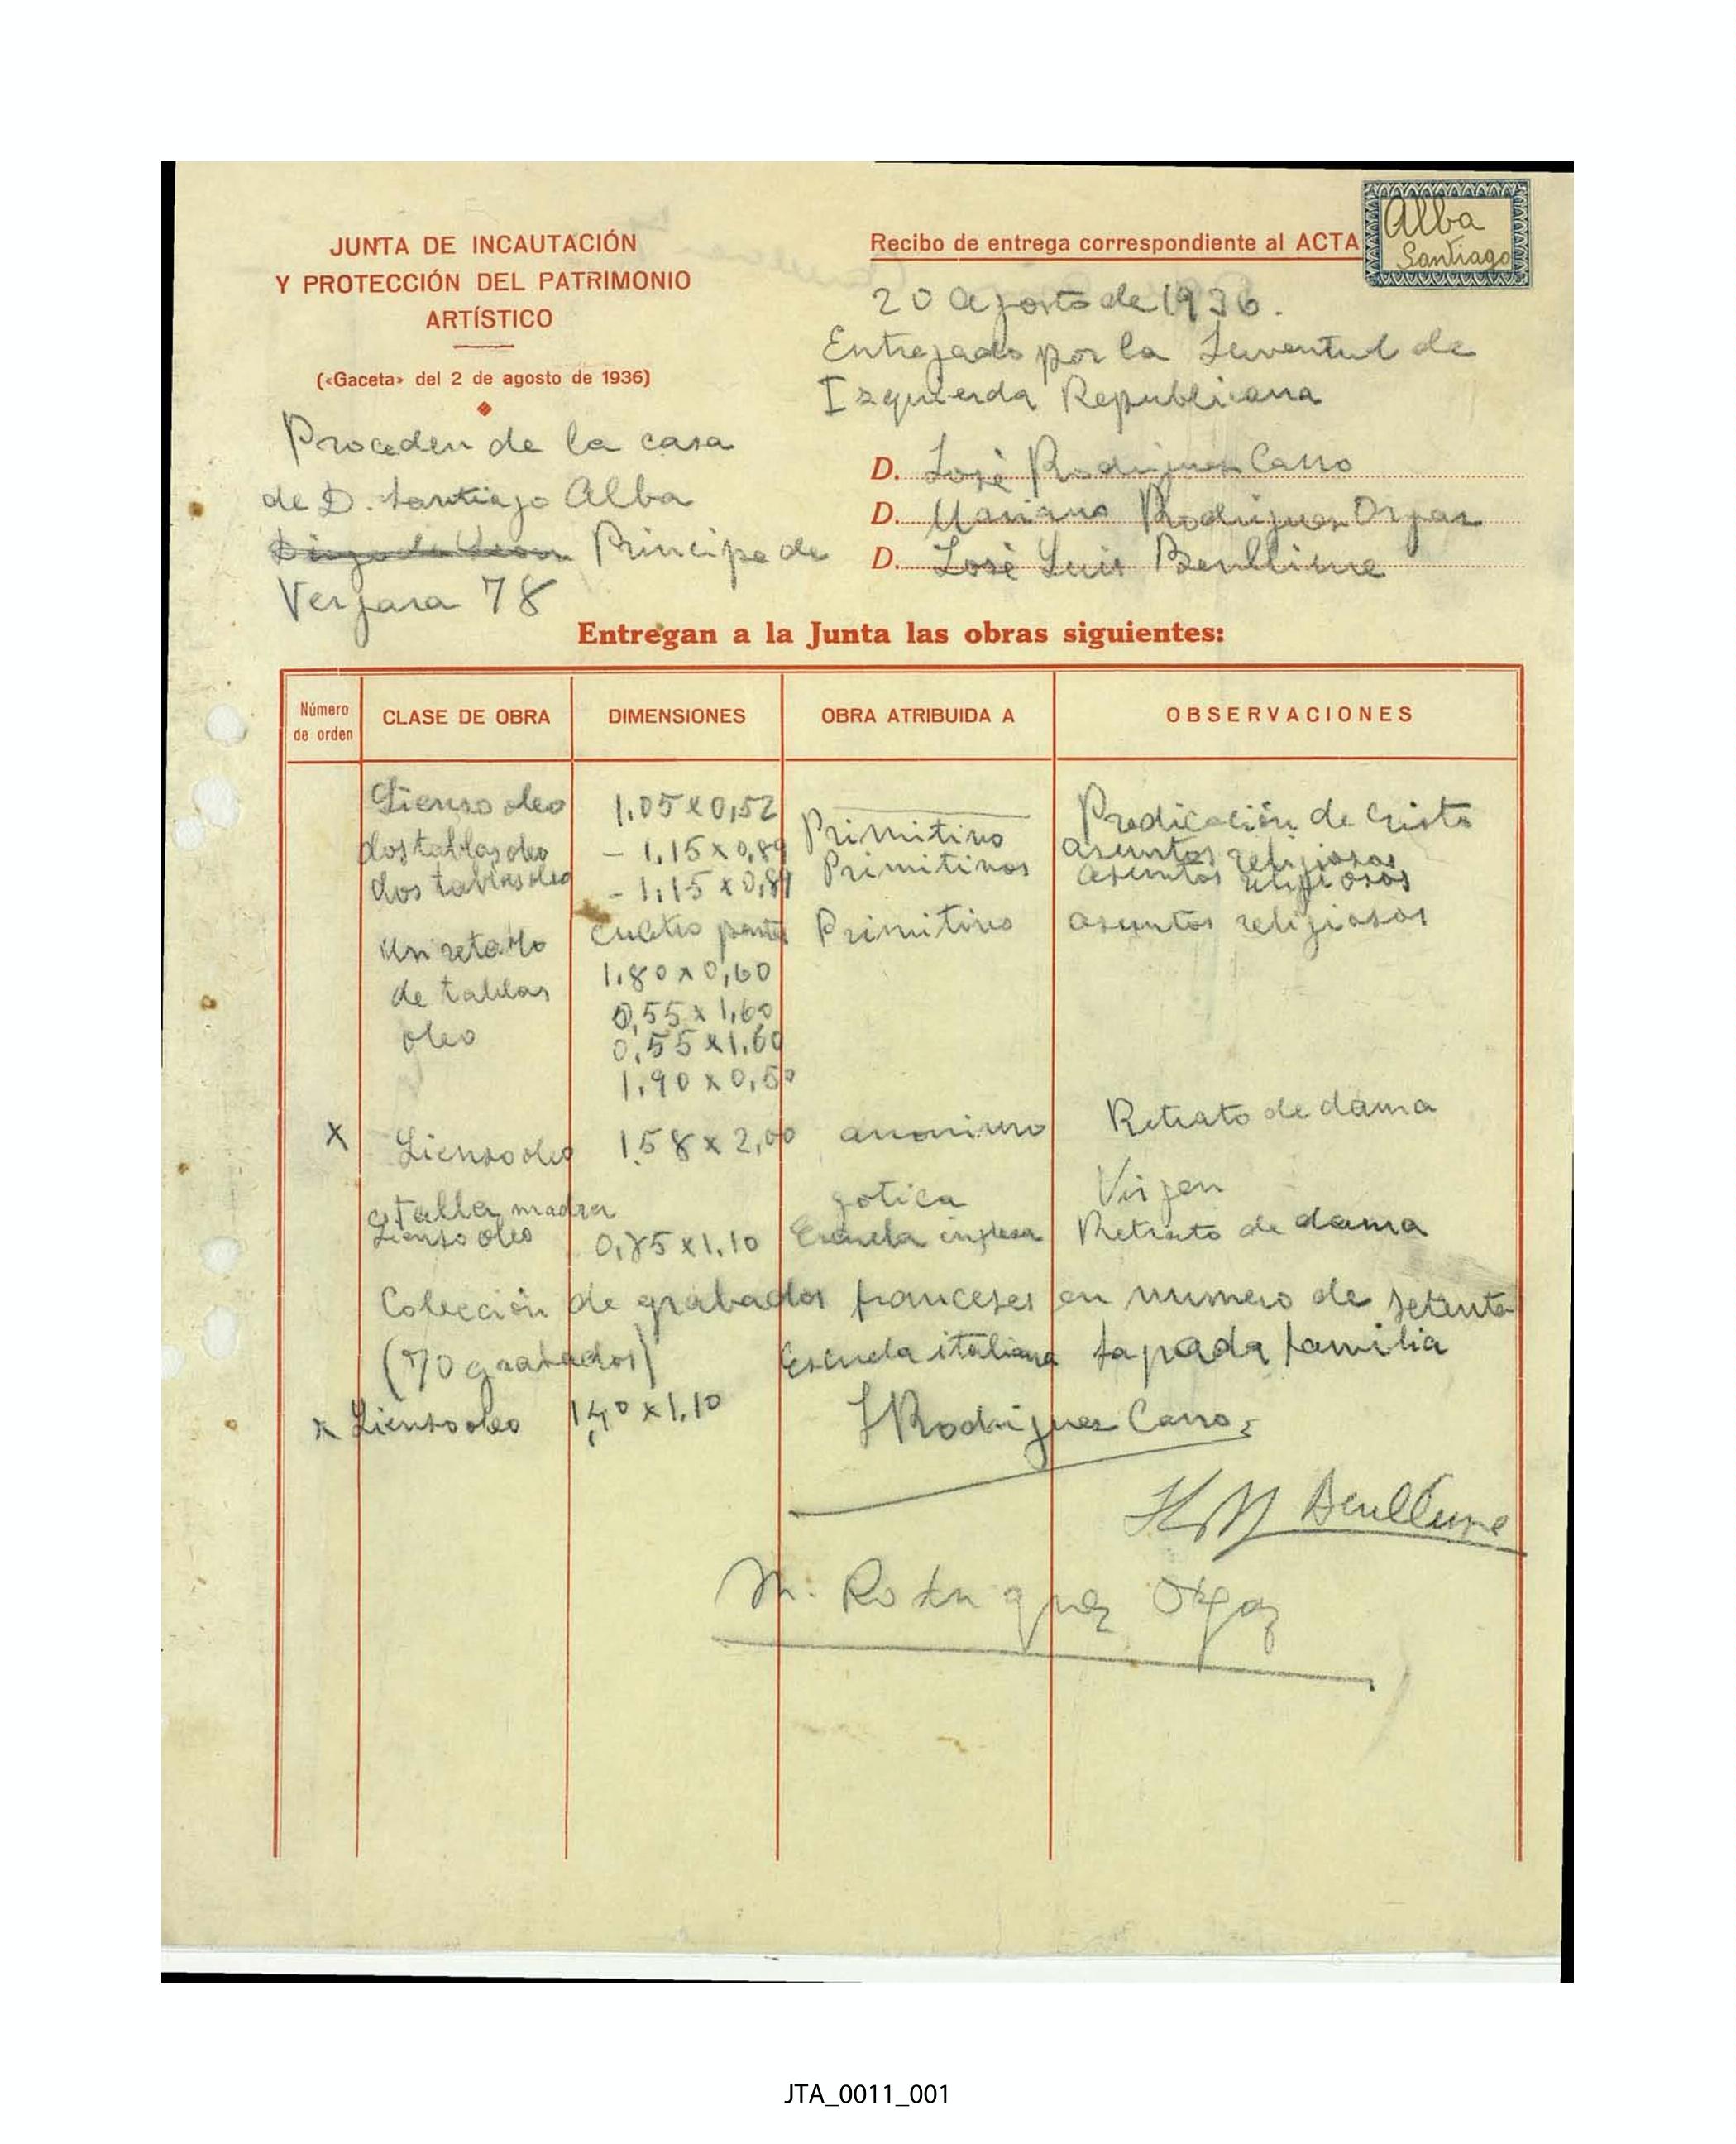 JUNTA DE INCAUTACIÓN
Y PROTECCIÓN DEL PATRIMONIO
ARTÍSTICO
(«Gaceta» del 2 de agosto de 1936)
Proceden de la casa
de D. Santiago Alba
Diego de Leon Principe de
Vergara 78
Recibo de entrega correspondiente al ACTA
Alba
Santiago
20 Agosto de 1936.
Entregado por la Juventud de
Izquierda Republicana
D. José Rodriguez Cano
D. Mariano Rodriguez Orgaz
D. José Luis Benlliure
Entregan a la Junta las obras siguientes:
Número de orden CLASE DE OBRA DIMENSIONES OBRA ATRIBUIDA A OBSERVACIONES
Lienzo oleo 1,05 x 0,52 Predicación de Cristo
dos tablas oleo - 1,15 x 0,89 Primitivo asuntos religiosos
dos tablas oleo - 1,15 x 0,89 Primitivos asuntos religiosos
Un retablo cuatro partes Primitivo asuntos religiosos
de tablas 1,80 x 0,60
oleo 0,55 x 1,60
0,55 x 1,60
1,90 x 0,50
x Lienzo oleo 1,58 x 2,00 anonimo Retrato de dama
talla madera gotica Virgen
Lienzo oleo 0,85 x 1,10 Escuela inglesa Retrato de dama
Colección de grabados franceses en numero de setenta
(70 grabados)
x Lienzo oleo 1,40 x 1,10 Escuela italiana Sagrada familia
J Rodriguez Cano
Benlliure
M. Rodriguez Orgaz
JTA_0011_001